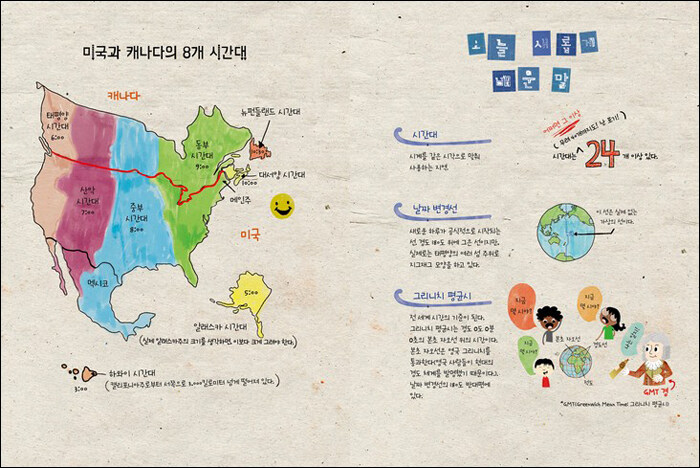 미국과 캐나다의 8개 시간대!
캐나다
태평양
시간대
6:00
산악
시간대
7:00
중부
시간대
8:00
동부
시간대
9:00
뉴펀들랜드 시간대
10:30
대서양 시간대
10:00
메인주
미국
멕시코
5:00
알래스카 시간대
(실제 알래스카주의 크기를 생각하면, 이보다 크게 그려야 한다.)
하와이 시간대
(캘리포니아주로부터 서쪽으로 3,000킬로미터 넘게 떨어져 있다.)
3:00
오늘 새롭게
배운 말
시간대
시계를 같은 시간으로 맞춰
사용하는 지역.
어쩌면 그 이상
시간대는 24 개 이상 있다.
날짜 변경선
새로운 하루가 공식적으로 시작되는
선. 경도 180도 위에 그은 선이지만,
실제로는 태평양의 여러 섬 주위로
지그재그 모양을 하고 있다.
이 선은 실제 없는
가상의 선이다.
그리니치 평균시
전 세계 시간의 기준이 된다.
그리니치 평균시는 경도 0도 0분
0초의 본초 자오선 위의 시간이다.
본초 자오선은 영국 그리니치를
통과한다(영국 사람들이 현대의
경도 체계를 발명했기 때문이다.).
날짜 변경선의 180도 반대편에
있다.
지금
몇 시야?
지금
몇 시야?
지금
몇 시야?
본초 자오선
경도선
적도
GMT 경
*GMT(Greenwich Mean Time) 그리니치 평균시